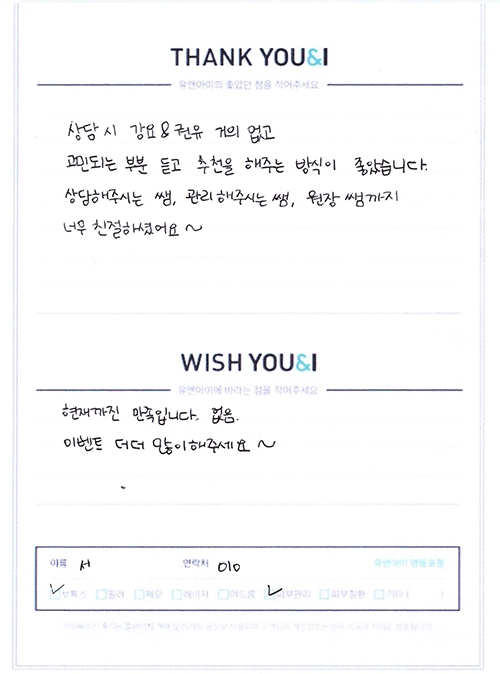 THANK YOU&I
유앤아이의 좋았던 점을 적어주세요
상담 시 강요&권유 거의 없고
고민되는 부분 듣고 추천을 해주는 방식이 좋았습니다.
상담해주시는 쌤, 관리해주시는 쌤, 원장 쌤까지
너무 친절하셨어요~
WISH YOU&I
유앤아이에 바라는 점을 적어주세요
현재까진 만족입니다. 없음.
이벤트 더더 많이해주세요~
이름 서 연락처 010 유앤아이 영등포점
보톡스 필러 제모 레이저 여드름 피부관리 피부질환 기타 ( )